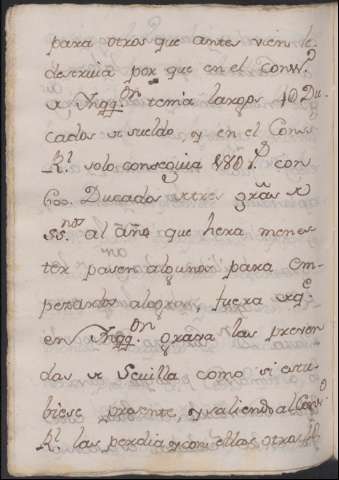 para otros que antes vien le
deservia por que en el Cons.º
a Inqq.on tenia largos 10 Du-
cados de sueldo, y en el Cons.
R.l solo conseguia con
600 Ducados extra gras de
ss.nos al año que hera menes-
ter pasen algunos para em-
pezarlos alograr, fuera de q.e
en Inqq.on gozava las preven
das de Sevilla como si estu-
biese presente, y saliendo al Cons.º
R.l las perdia y con ellas otros